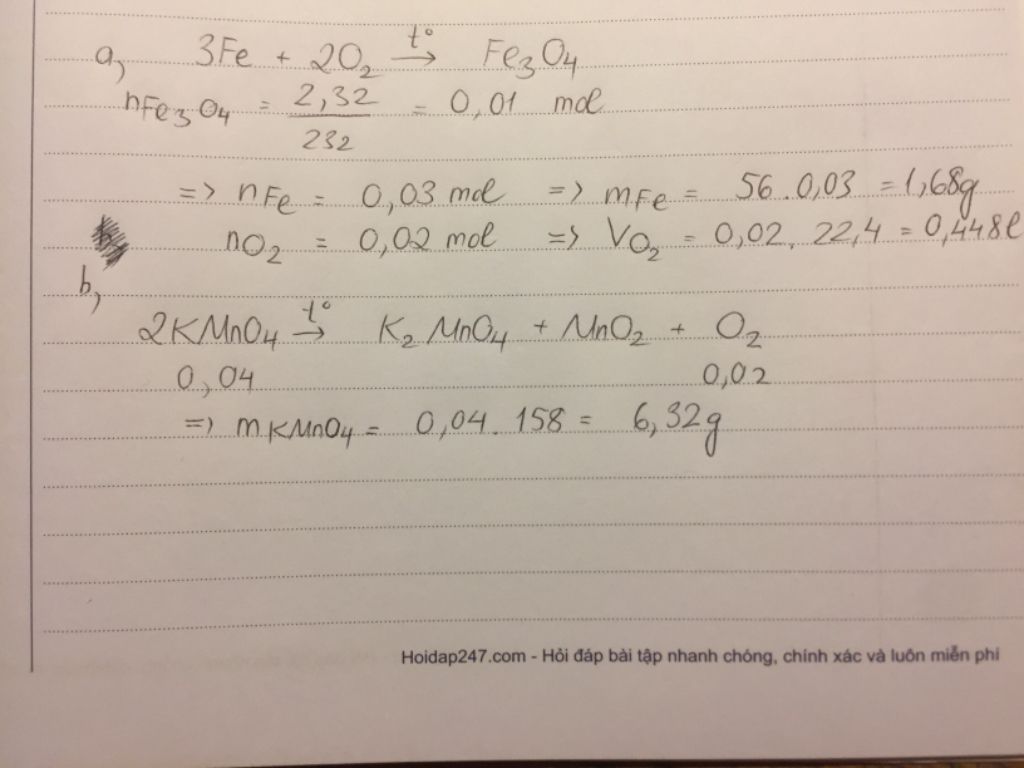 a, 3Fe + 2O₂ →(t°) Fe₃O₄
nFe₃O₄ = 2,32/232 = 0,01 mol
=> nFe = 0,03 mol => mFe = 56.0,03 = 1,68g
nO₂ = 0,02 mol => VO₂ = 0,02.22,4 = 0,448l
b,
2KMnO₄ →(t°) K₂MnO₄ + MnO₂ + O₂
0,04 0,02
=> mKMnO₄ = 0,04.158 = 6,32g
Hoidap247.com - Hỏi đáp bài tập nhanh chóng, chính xác và luôn miễn phí